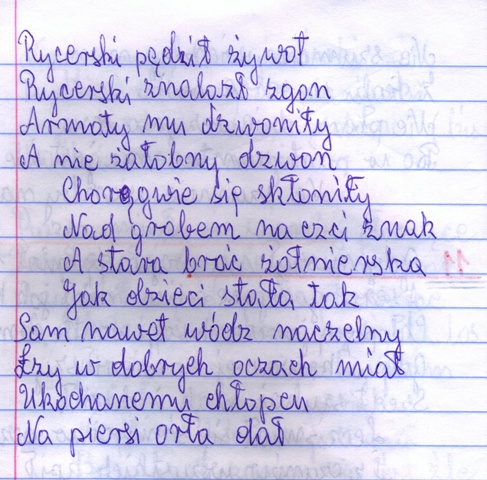 Rycerski pędził żywot
Rycerski znalazł zgon
Armaty mu dzwoniły
A nie żałobny dzwon
Chorągwie się skłoniły
Nad grobem na czci znak
A stara brać żołnierska
Jak dzieci stała tak
Sam nawet wódz naczelny
Łzy w dobrych oczach miał
Ukochanemu chłopcu
Na piersi orła dał